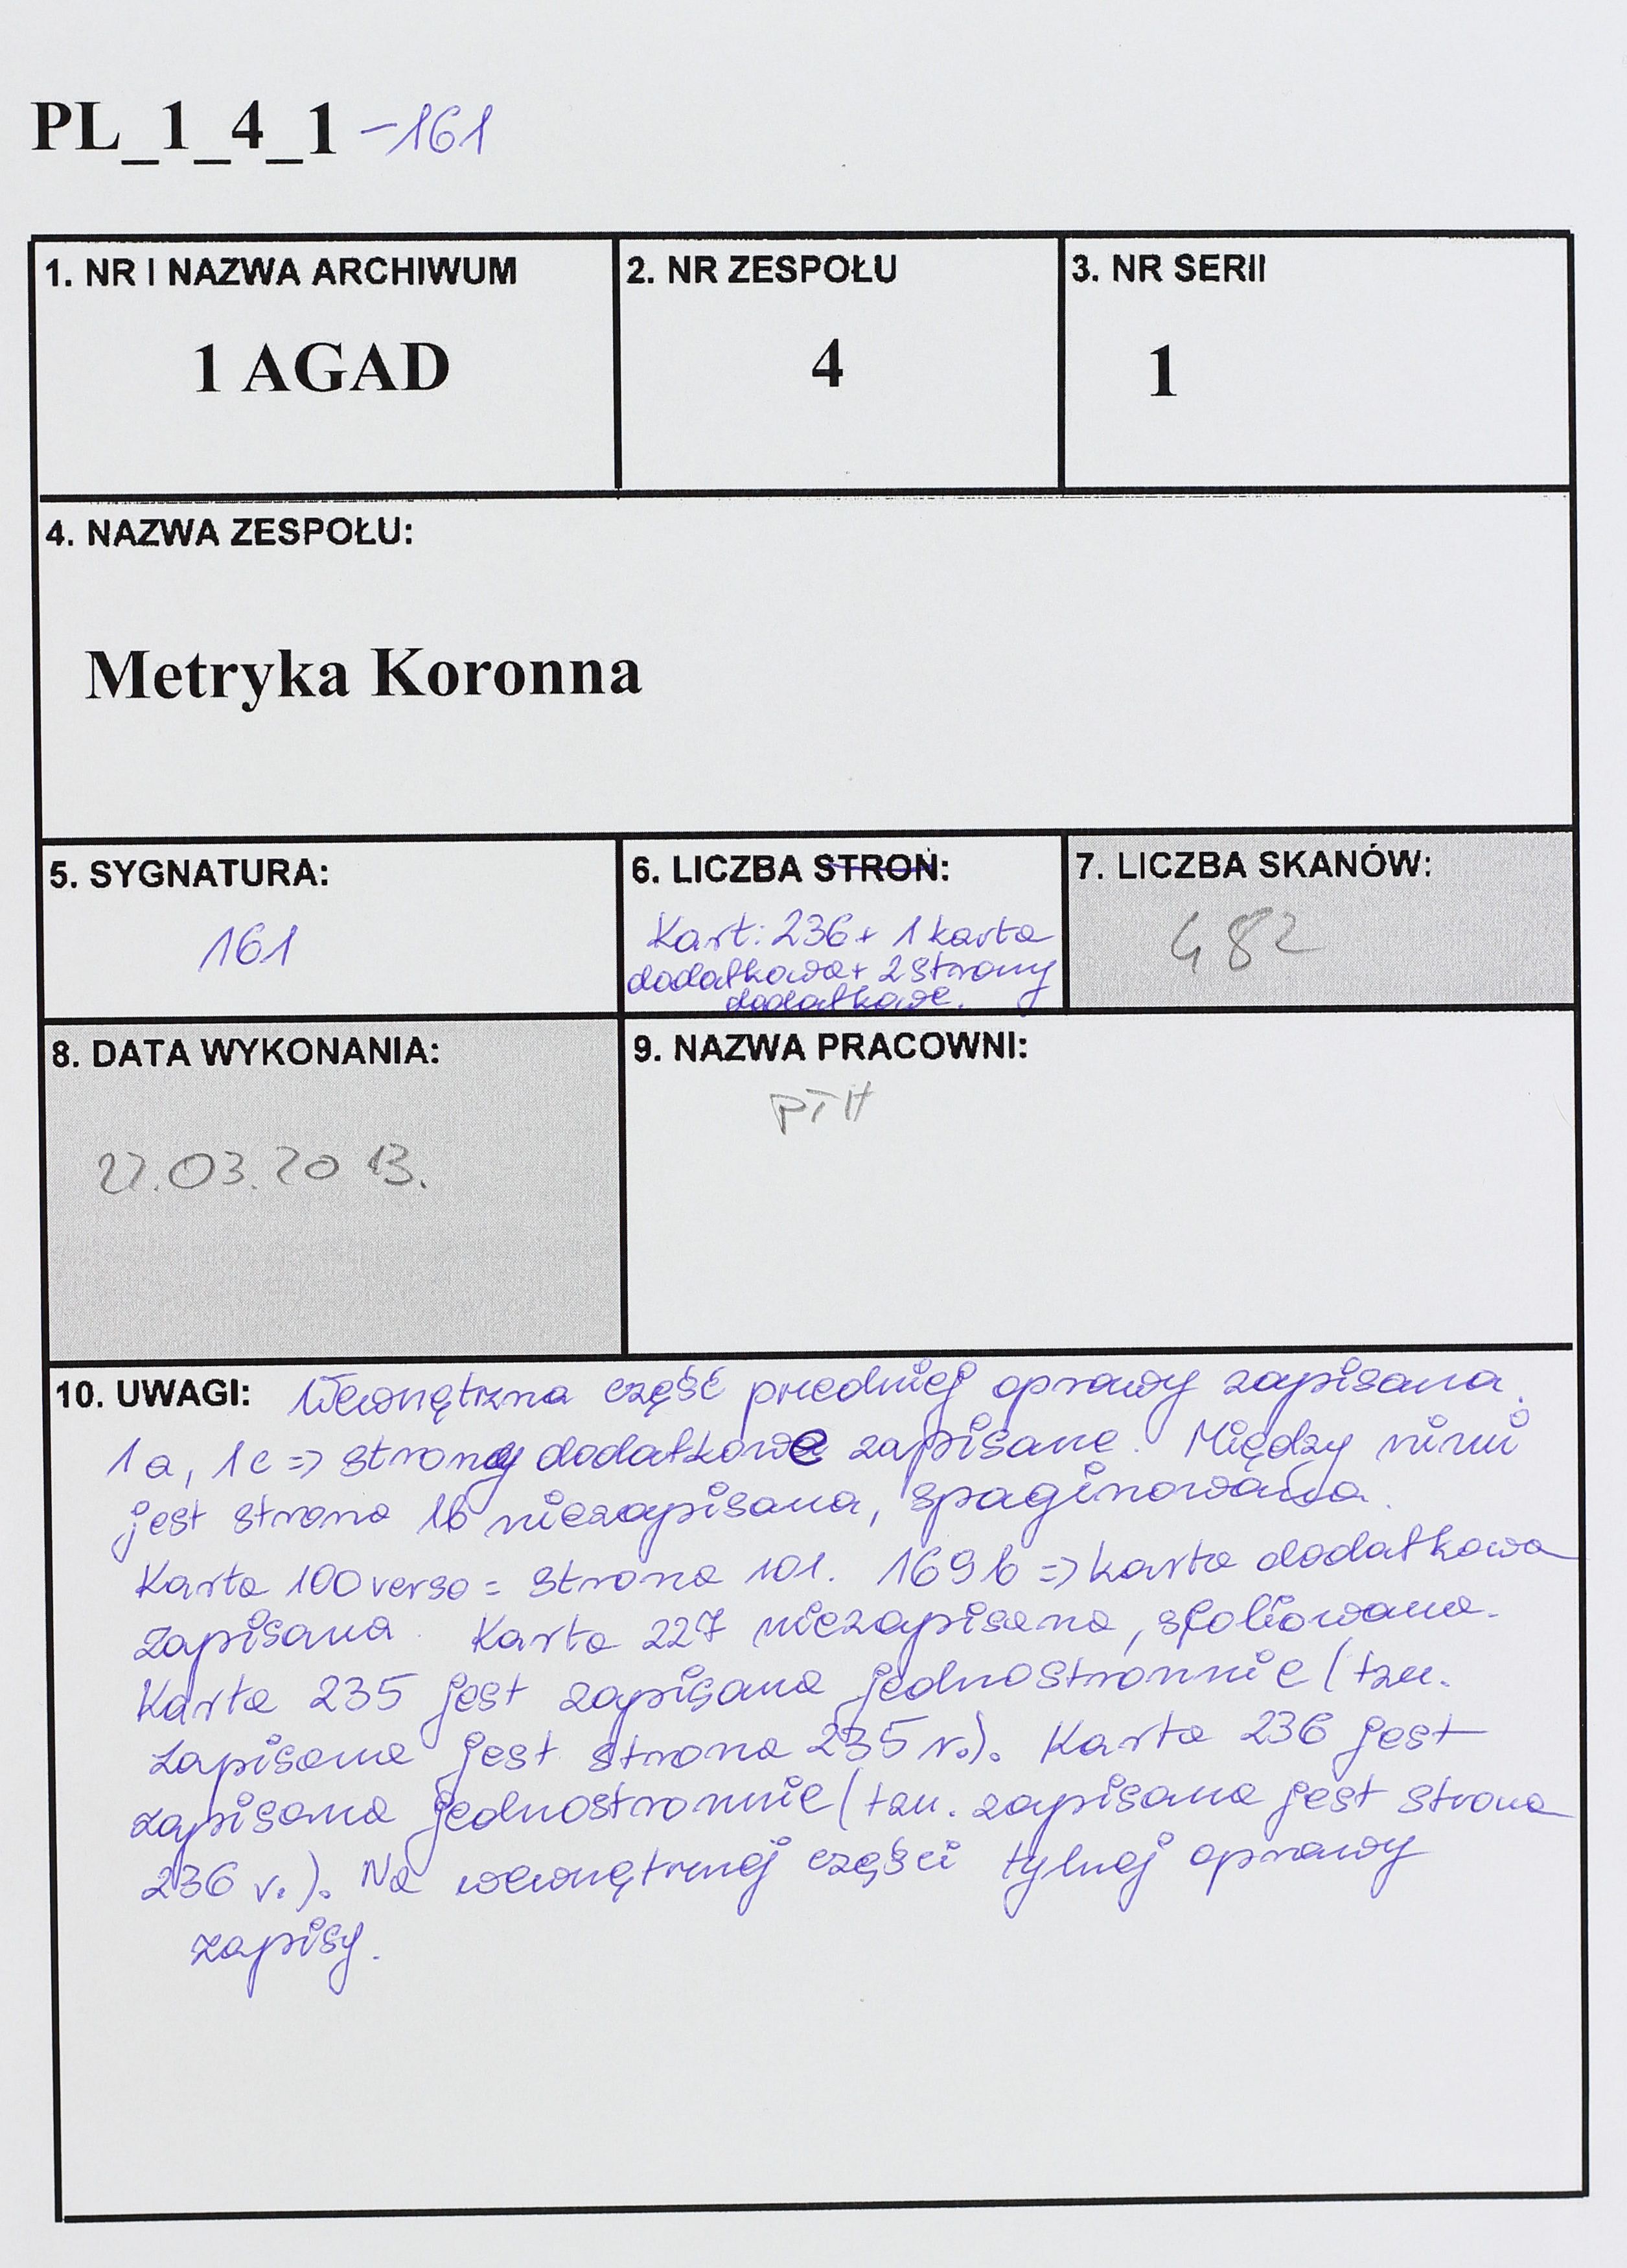 PL_1_4_1 -161
1. NR I NAZWA ARCHIWUM
1 AGAD
2. NR ZESPOŁU
4
3. NR SERII
1
4. NAZWA ZESPOŁU:
Metryka Koronna
5. SYGNATURA:
161
6. LICZBA STRON:
Kart: 236 + 1 karta
dodatkowa + 2 strony
dodatkowe.
7. LICZBA SKANÓW:
482
8. DATA WYKONANIA:
27.03.2013.
9. NAZWA PRACOWNI:
PTH
10. UWAGI: Wewnętrzna część przedniej oprawy zapisana.
1a, 1c => strony dodatkowe zapisane. Między nimi
jest strona 1b niezapisana, spaginowana.
Karta 100 verso = strona 101. 169b => karta dodatkowa
zapisana. Karta 227 niezapisana, sfoliowana.
Karta 235 jest zapisana jednostronnie (tzn.
zapisana jest strona 235 v.). Karta 236 jest
zapisana jednostronnie (tzn. zapisana jest strona
236 v.). Na wewnętrznej części tylnej oprawy
zapisy.